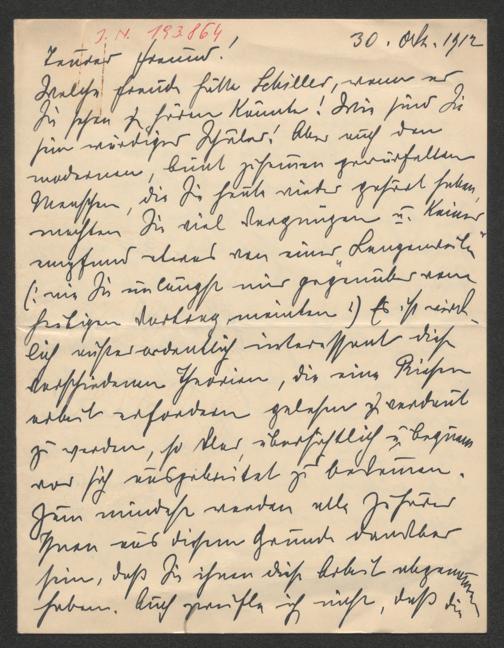 J. N. 193.864
30. Okt. 1912
Teurer Freund!
Welche Freude hätte Schiller, wenn er
Sie sehen & hören könnte! Wir sind Sie
sein würdiger Schüler! Aber auch den
modernen, bunt zusammen gewürfelten
Menschen, die Sie heute wieder gehört haben,
machten Sie viel Vergnügen u. Keiner
empfand etwas von einer „Langenweile"
(: wie Sie unlängst mir gegenüber vom
heutigen Vortrag meinten :) Es ist wirk-
lich außerordentlich interessant diese
verschiedenen Theorien, die eine Riesen
arbeit erfordern gelesen & verdaut
zu werden, so klar, übersichtlich u. bequem
vor sich ausgebreitet zu bekommen.
Zum mindest werden alle Zuhörer
Ihnen aus diesem Grunde dankbar
sein, daß Sie ihnen diese Arbeit abgenommen
haben. Auch zweifle ich nicht, daß die